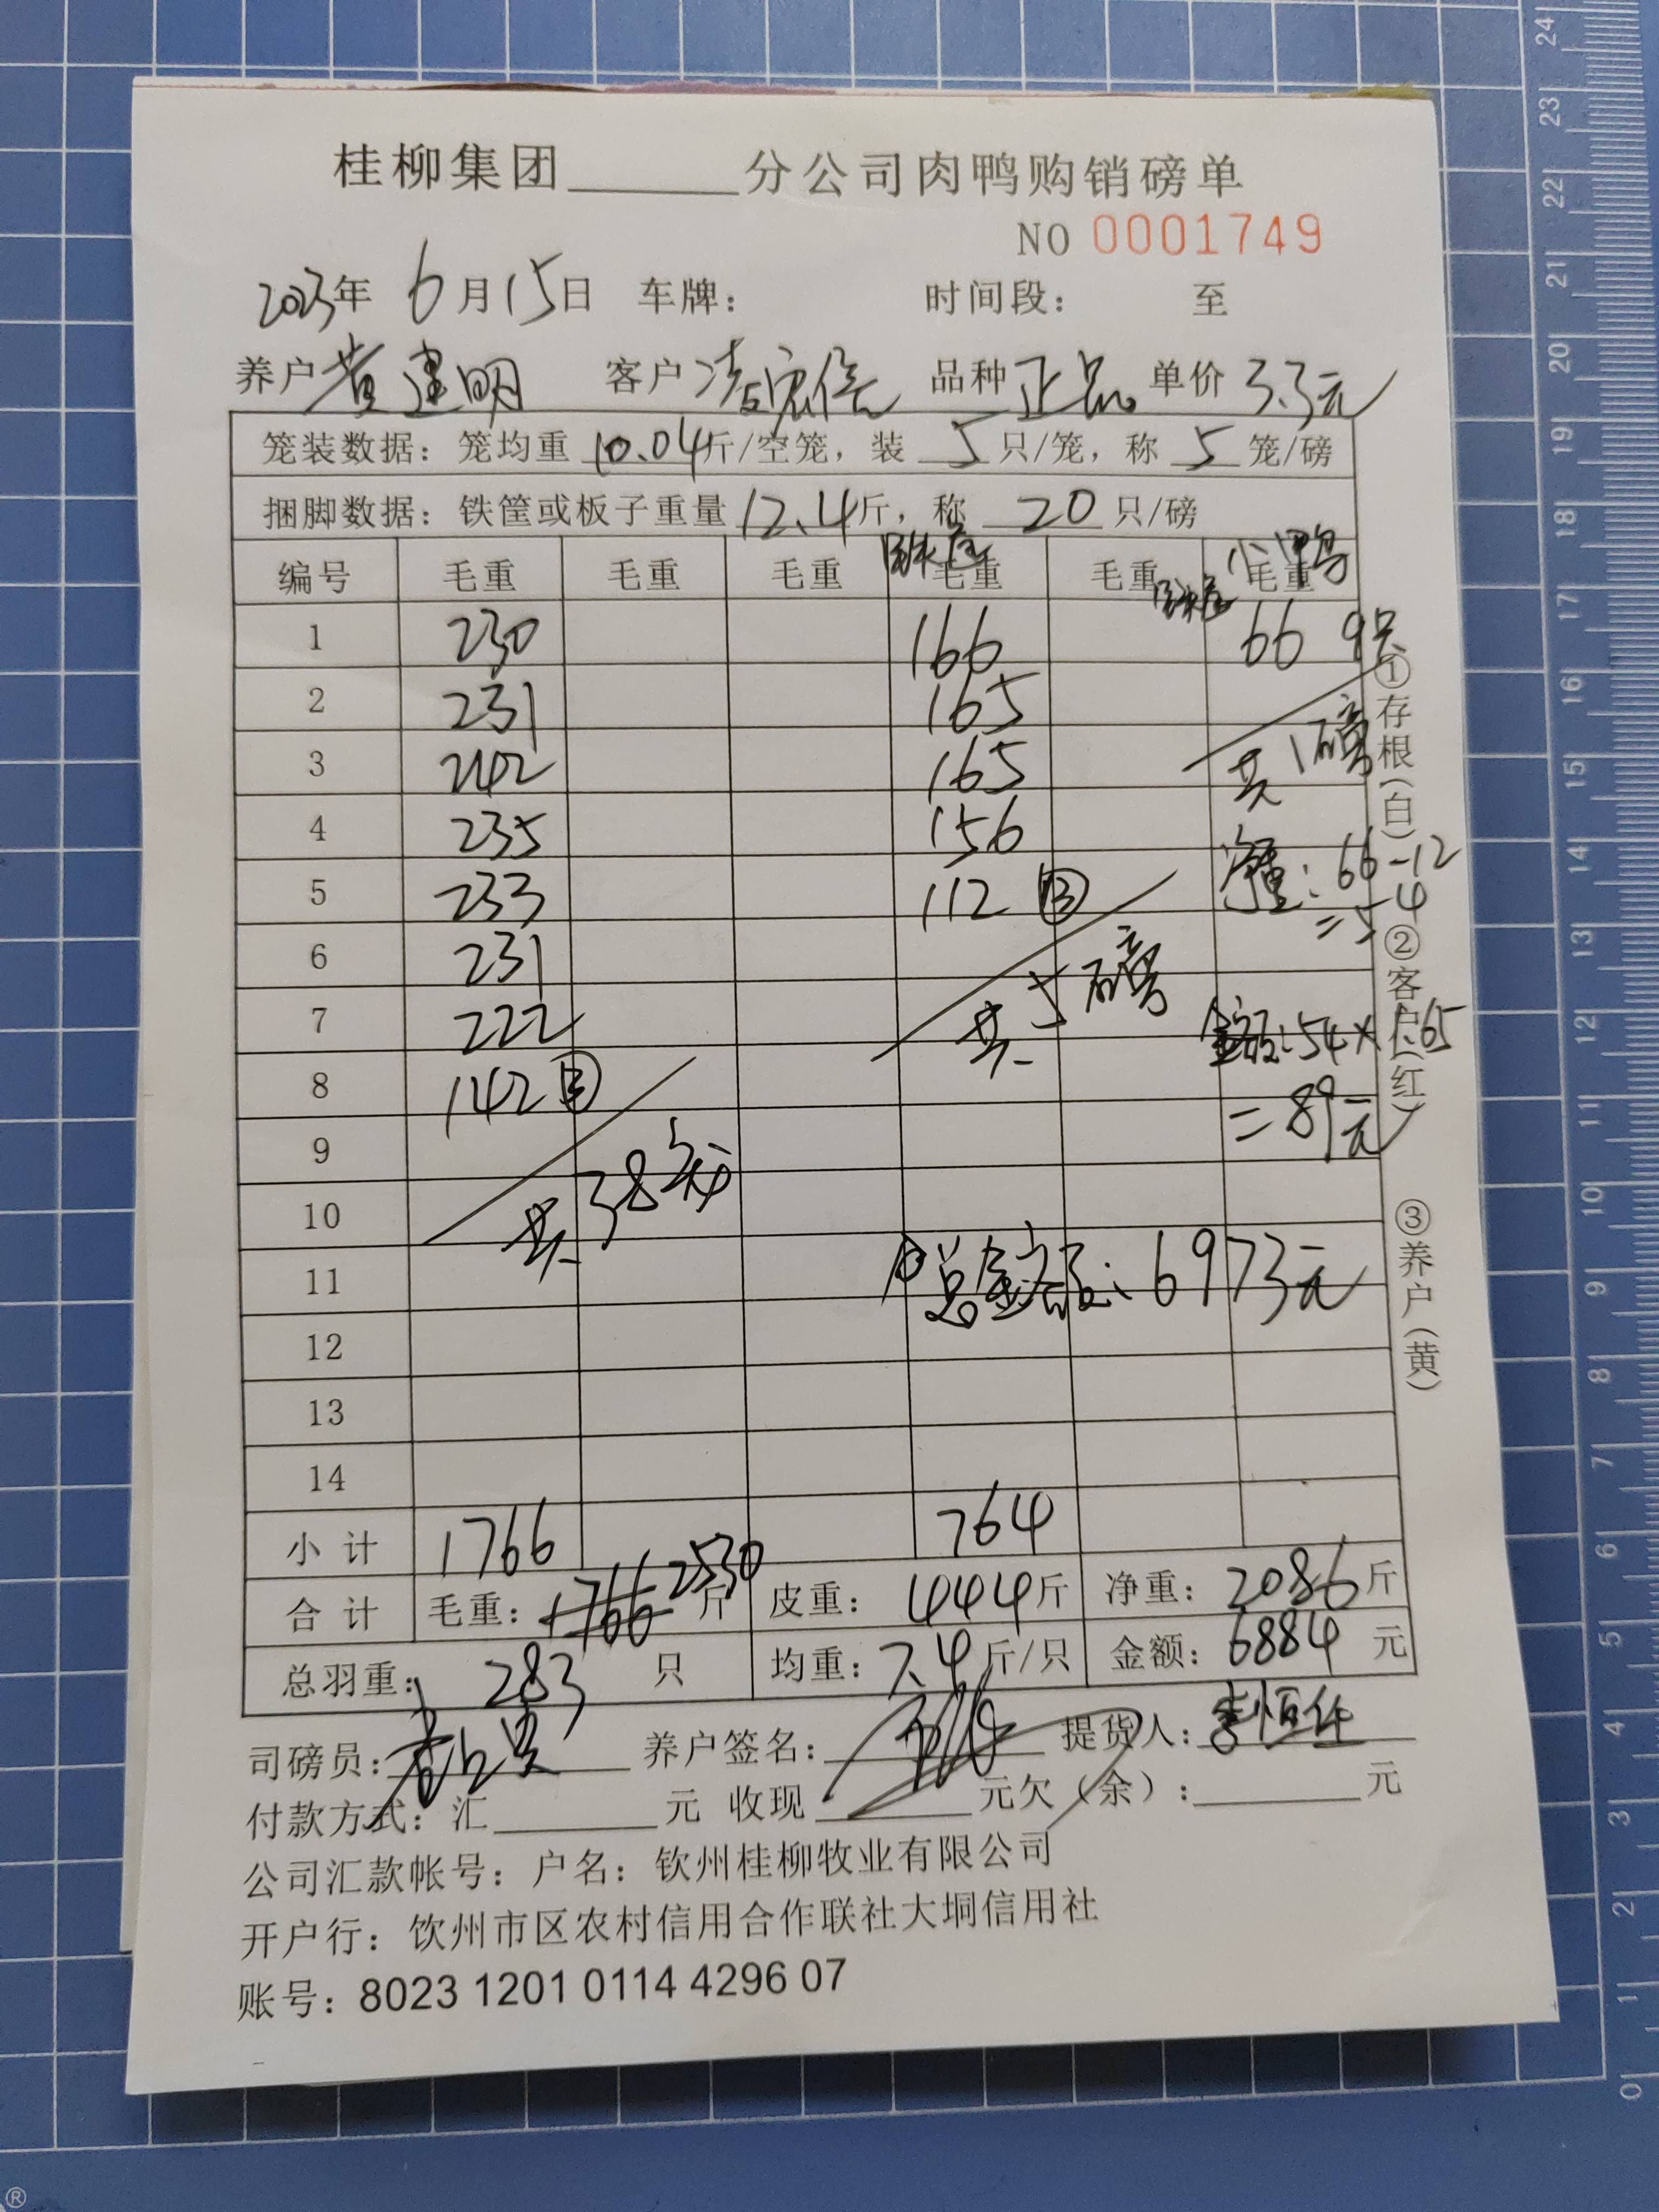 桂柳集团______分公司肉鸭购销磅单
NO 0001749
2023年 6月15日 车牌： 时间段： 至
养户 黄建明 客户 凌宏信 品种 正品 单价 3.3元
笼装数据：笼均重 10.04斤/空笼，装 5 只/笼，称 5 笼/磅
捆脚数据：铁筐或板子重量 12.4斤，称 20 只/磅
铁筐 小鸭
编号 毛重 毛重 毛重 毛重 毛重 毛重
铁筐
1 230 166 66 9只
2 231 165
3 242 165 共1磅
4 235 156
5 233 112 ⑬ 净重：66-12
=54
6 231
7 222 共5磅 金额：54×1.65
8 142 ③ =89元
9
10 共38笼
11 总金额：6973元
12
13
14
小计 1766 764
合计 毛重：1766 2530 斤 皮重：444斤 净重：2086斤
总羽重：283 只 均重：7.4斤/只 金额：6884 元
司磅员： 养户签名： 提货人：李恒任
付款方式：汇______元 收现______元欠（余）：______元
公司汇款帐号：户名：钦州桂柳牧业有限公司
开户行：钦州市区农村信用合作联社大垌信用社
账号：8023 1201 0114 4296 07
①存根(白)
②客户(红)
③养户(黄)
24
23
22
21
20
19
18
17
16
15
14
13
12
11
10
9
8
7
6
5
4
3
2
1
0
®